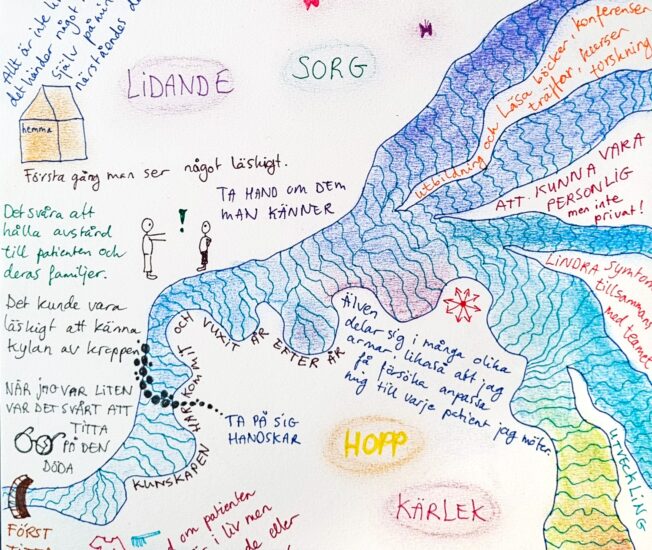 Allt är inte
det händer något i
själv på
närståendes
LIDANDE
SORG
hemma
Första gång man ser något läskigt.
utbildning och läsa böcker, konferenser
träffar, kurser
forskning
ATT KUNNA VARA
PERSONLIG
men inte
privat!
TA HAND OM DEM
MAN KÄNNER
!
Det svåra att
hålla avstånd
till patienten och
deras familjer.
LINDRA Symtom
tillsammans
med teamet
Det kunde vara
läskigt att känna
kylan av kroppen
KUNSKAPEN HAR KOMMIT OCH VUXIT ÅR EFTER ÅR
Älven
delar sig i många olika
armar likaså att jag
få försöka anpassa
mig till varje patient jag möter.
NÄR JAG VAR LITEN
VAR DET SVÅRT ATT
TITTA
PÅ DEN
DÖDA
TA PÅ SIG
HANDSKAR
HOPP
KÄRLEK
UTVECKLING
FÖRST
om patienten
i liv men
eller